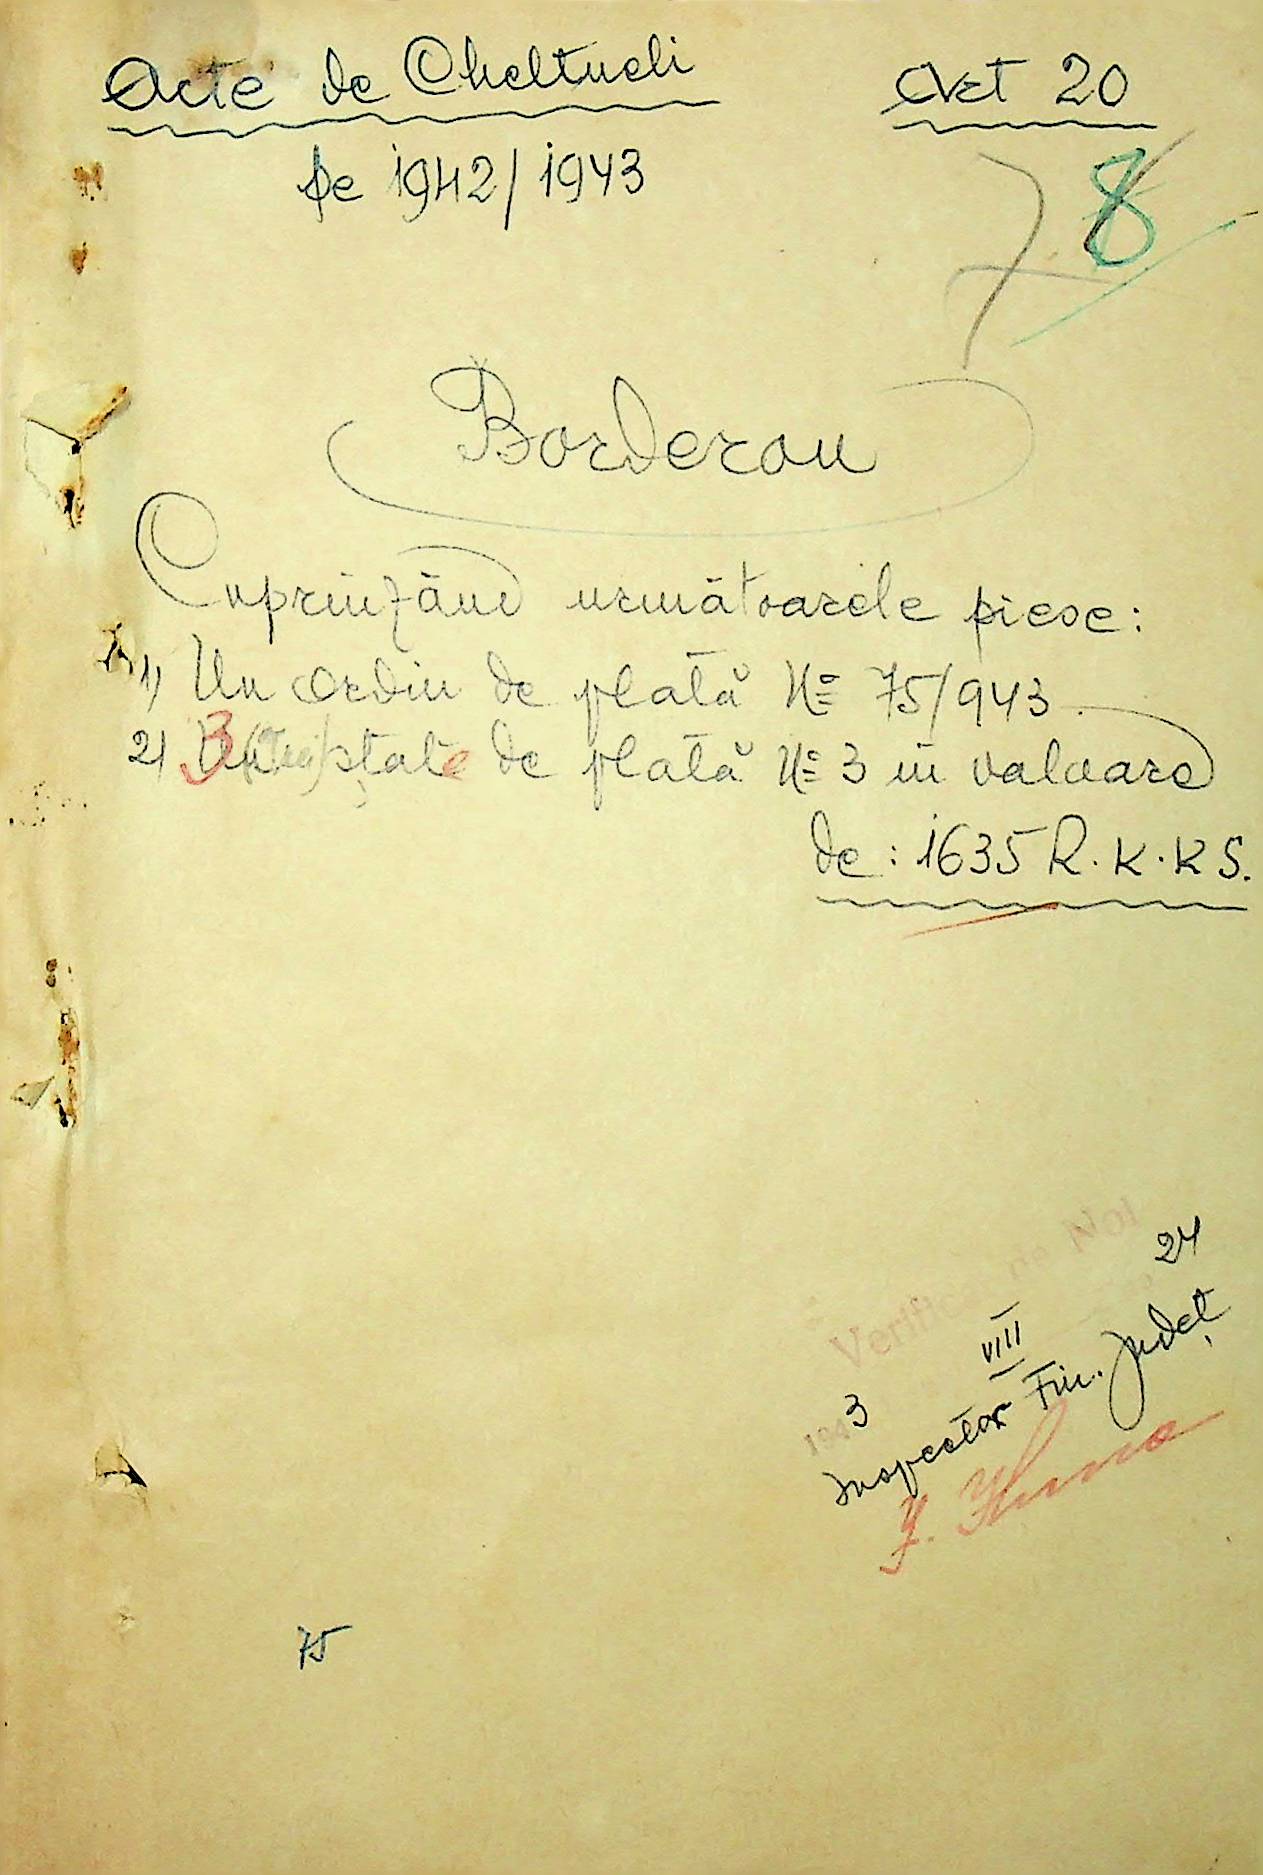 Acte de Cheltueli
Art 20
pe 1942/1943
7 8
Borderou
Cuprinzând următoarele piese:
1) Un Ordin de plată № 75/943.
2) 3 state de plată № 3 în valoare
de: 1635 R.K.K.S.
Verificat de Noi
24
VIII
1943
Inspector Fin. Județ
75